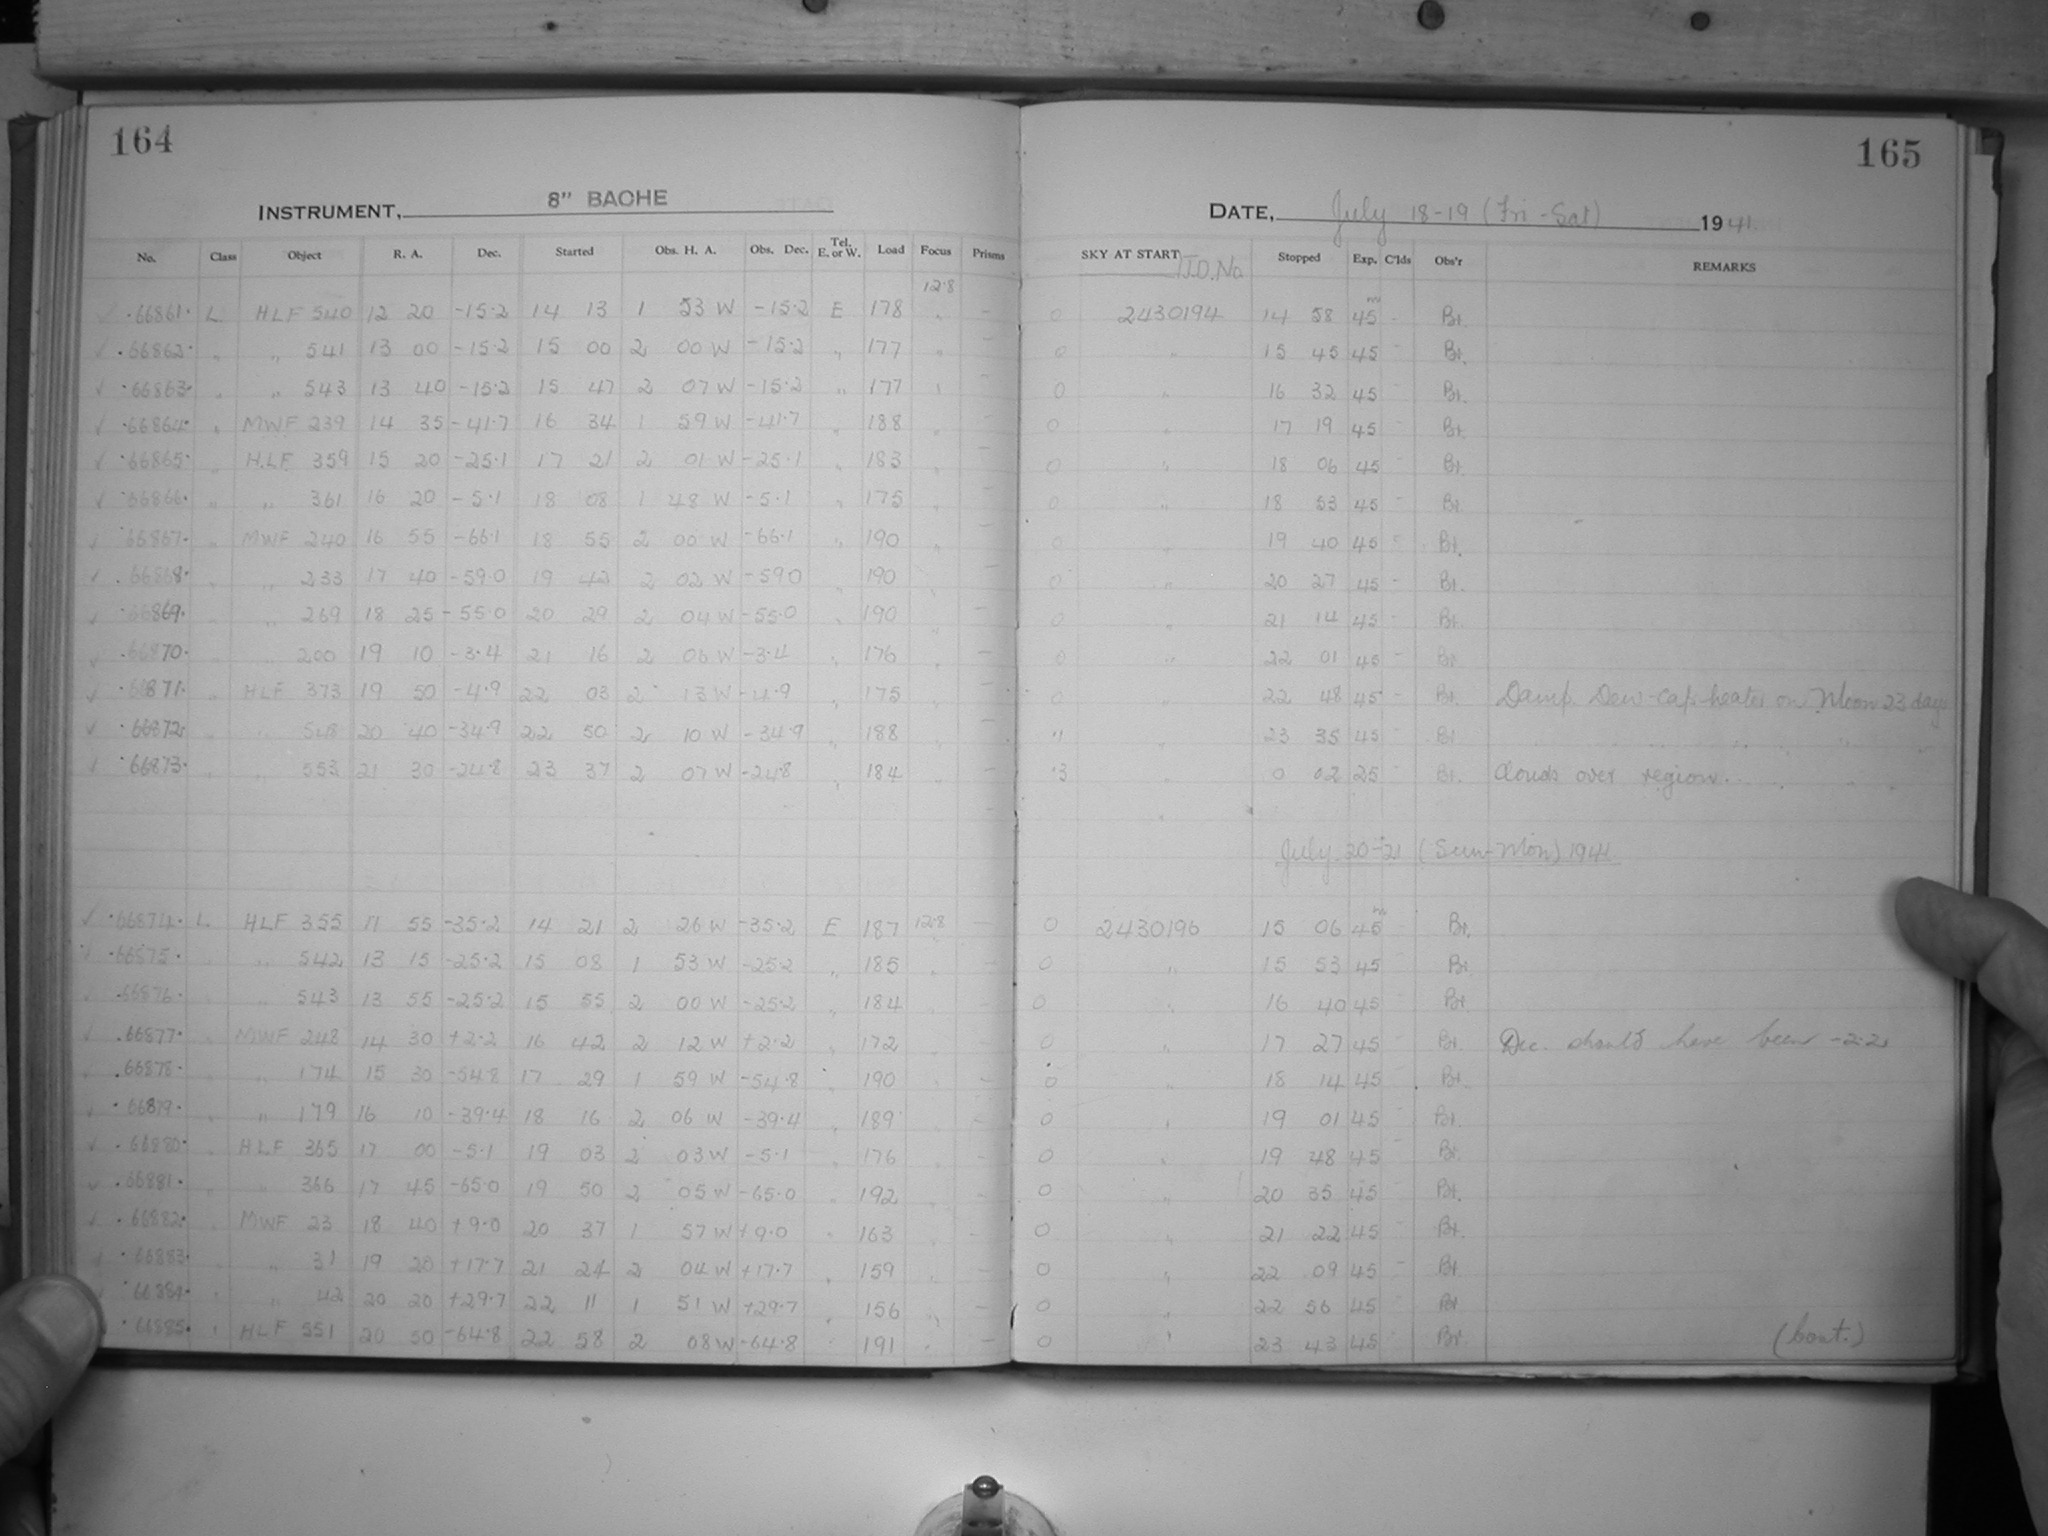 164
INSTRUMENT, 8" BACHE
No. Class Object R. A. Dec. Started Obs. H. A. Obs. Dec. Tel. E. or W. Load Focus Prisms
12.8
66861 L HLF 540 12 20 -15.2 14 13 1 53 W -15.2 E 178 " -
66862 " " 541 13 00 -15.2 15 00 2 00 W -15.2 " 177 " -
66863 " " 543 13 40 -15.2 15 47 2 07 W -15.2 " 177 " -
66864 " MWF 239 14 35 -41.7 16 34 1 59 W -41.7 " 188 " -
66865 " HLF 359 15 20 -25.1 17 21 2 01 W -25.1 " 183 " -
66866 " " 361 16 20 -5.1 18 08 1 48 W -5.1 " 175 " -
66867 " MWF 240 16 55 -66.1 18 55 2 00 W -66.1 " 190 " -
66868 " " 233 17 40 -59.0 19 42 2 02 W -59.0 " 190 " -
66869 " " 269 18 25 -55.0 20 29 2 04 W -55.0 " 190 " -
66870 " " 200 19 10 -3.4 21 16 2 06 W -3.4 " 176 " -
66871 " HLF 373 19 50 -4.9 22 03 2 13 W -4.9 " 175 " -
66872 " " 548 20 40 -34.9 22 50 2 10 W -34.9 " 188 " -
66873 " " 553 21 30 -24.8 23 37 2 07 W -24.8 " 184 " -
66874 L HLF 355 11 55 -35.2 14 21 2 26 W -35.2 E 187 12.8 -
66875 " " 542 13 15 -25.2 15 08 1 53 W -25.2 " 185 " -
66876 " " 543 13 55 -25.2 15 55 2 00 W -25.2 " 184 " -
66877 " MWF 248 14 30 +2.2 16 42 2 12 W +2.2 " 172 " -
66878 " " 174 15 30 -54.8 17 29 1 59 W -54.8 " 190 " -
66879 " " 179 16 10 -39.4 18 16 2 06 W -39.4 " 189 " -
66880 " HLF 365 17 00 -5.1 19 03 2 03 W -5.1 " 176 " -
66881 " " 366 17 45 -65.0 19 50 2 05 W -65.0 " 192 " -
66882 " MWF 23 18 40 +9.0 20 37 1 57 W +9.0 " 163 " -
66883 " " 31 19 20 +17.7 21 24 2 04 W +17.7 " 159 " -
66884 " " 42 20 20 +29.7 22 11 1 51 W +29.7 " 156 " -
66885 " HLF 551 20 50 -64.8 22 58 2 08 W -64.8 " 191 " -
165
DATE, July 18-19 (Fri-Sat) 1941
SKY AT START J.D. No. Stopped Exp. C'lds Obs'r REMARKS
0 2430194 14 58 45m - Bt.
0 " 15 45 45 - Bt.
0 " 16 32 45 - Bt.
0 " 17 19 45 - Bt.
0 " 18 06 45 - Bt.
0 " 18 53 45 - Bt.
0 " 19 40 45 - Bt.
0 " 20 27 45 - Bt.
0 " 21 14 45 - Bt.
0 " 22 01 45 - Bt.
0 " 22 48 45 - Bt. Damp. Dew-cap-heater on. Moon 23 days
" 23 35 45 - Bt. " " " " "
.3 " 0 02 25 Bt. Clouds over region. " "
July 20-21 (Sun-Mon) 1941
0 2430196 15 06 45m Bt.
0 " 15 53 45 - Bt.
0 " 16 40 45 - Bt.
0 " 17 27 45 - Bt. Dec. should have been -2.2
0 " 18 14 45 - Bt.
0 " 19 01 45 - Bt.
0 " 19 48 45 - Bt.
0 " 20 35 45 - Bt.
0 " 21 22 45 - Bt.
0 " 22 09 45 - Bt.
0 " 22 56 45 - Bt.
0 " 23 43 45 - Bt.
(Cont.)